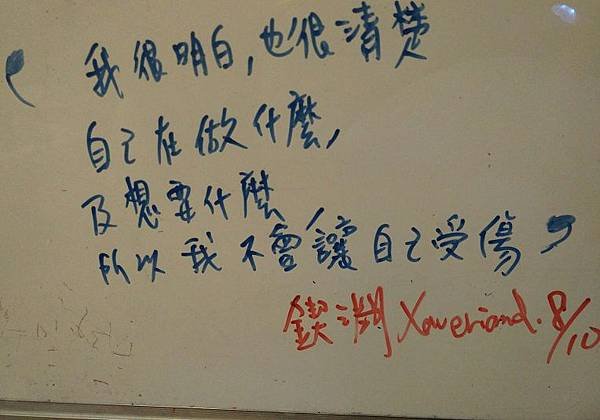 “我很明白,也很清楚
自己在做什麼,
及想要什麼
所以我不會讓自己受傷”
8/10